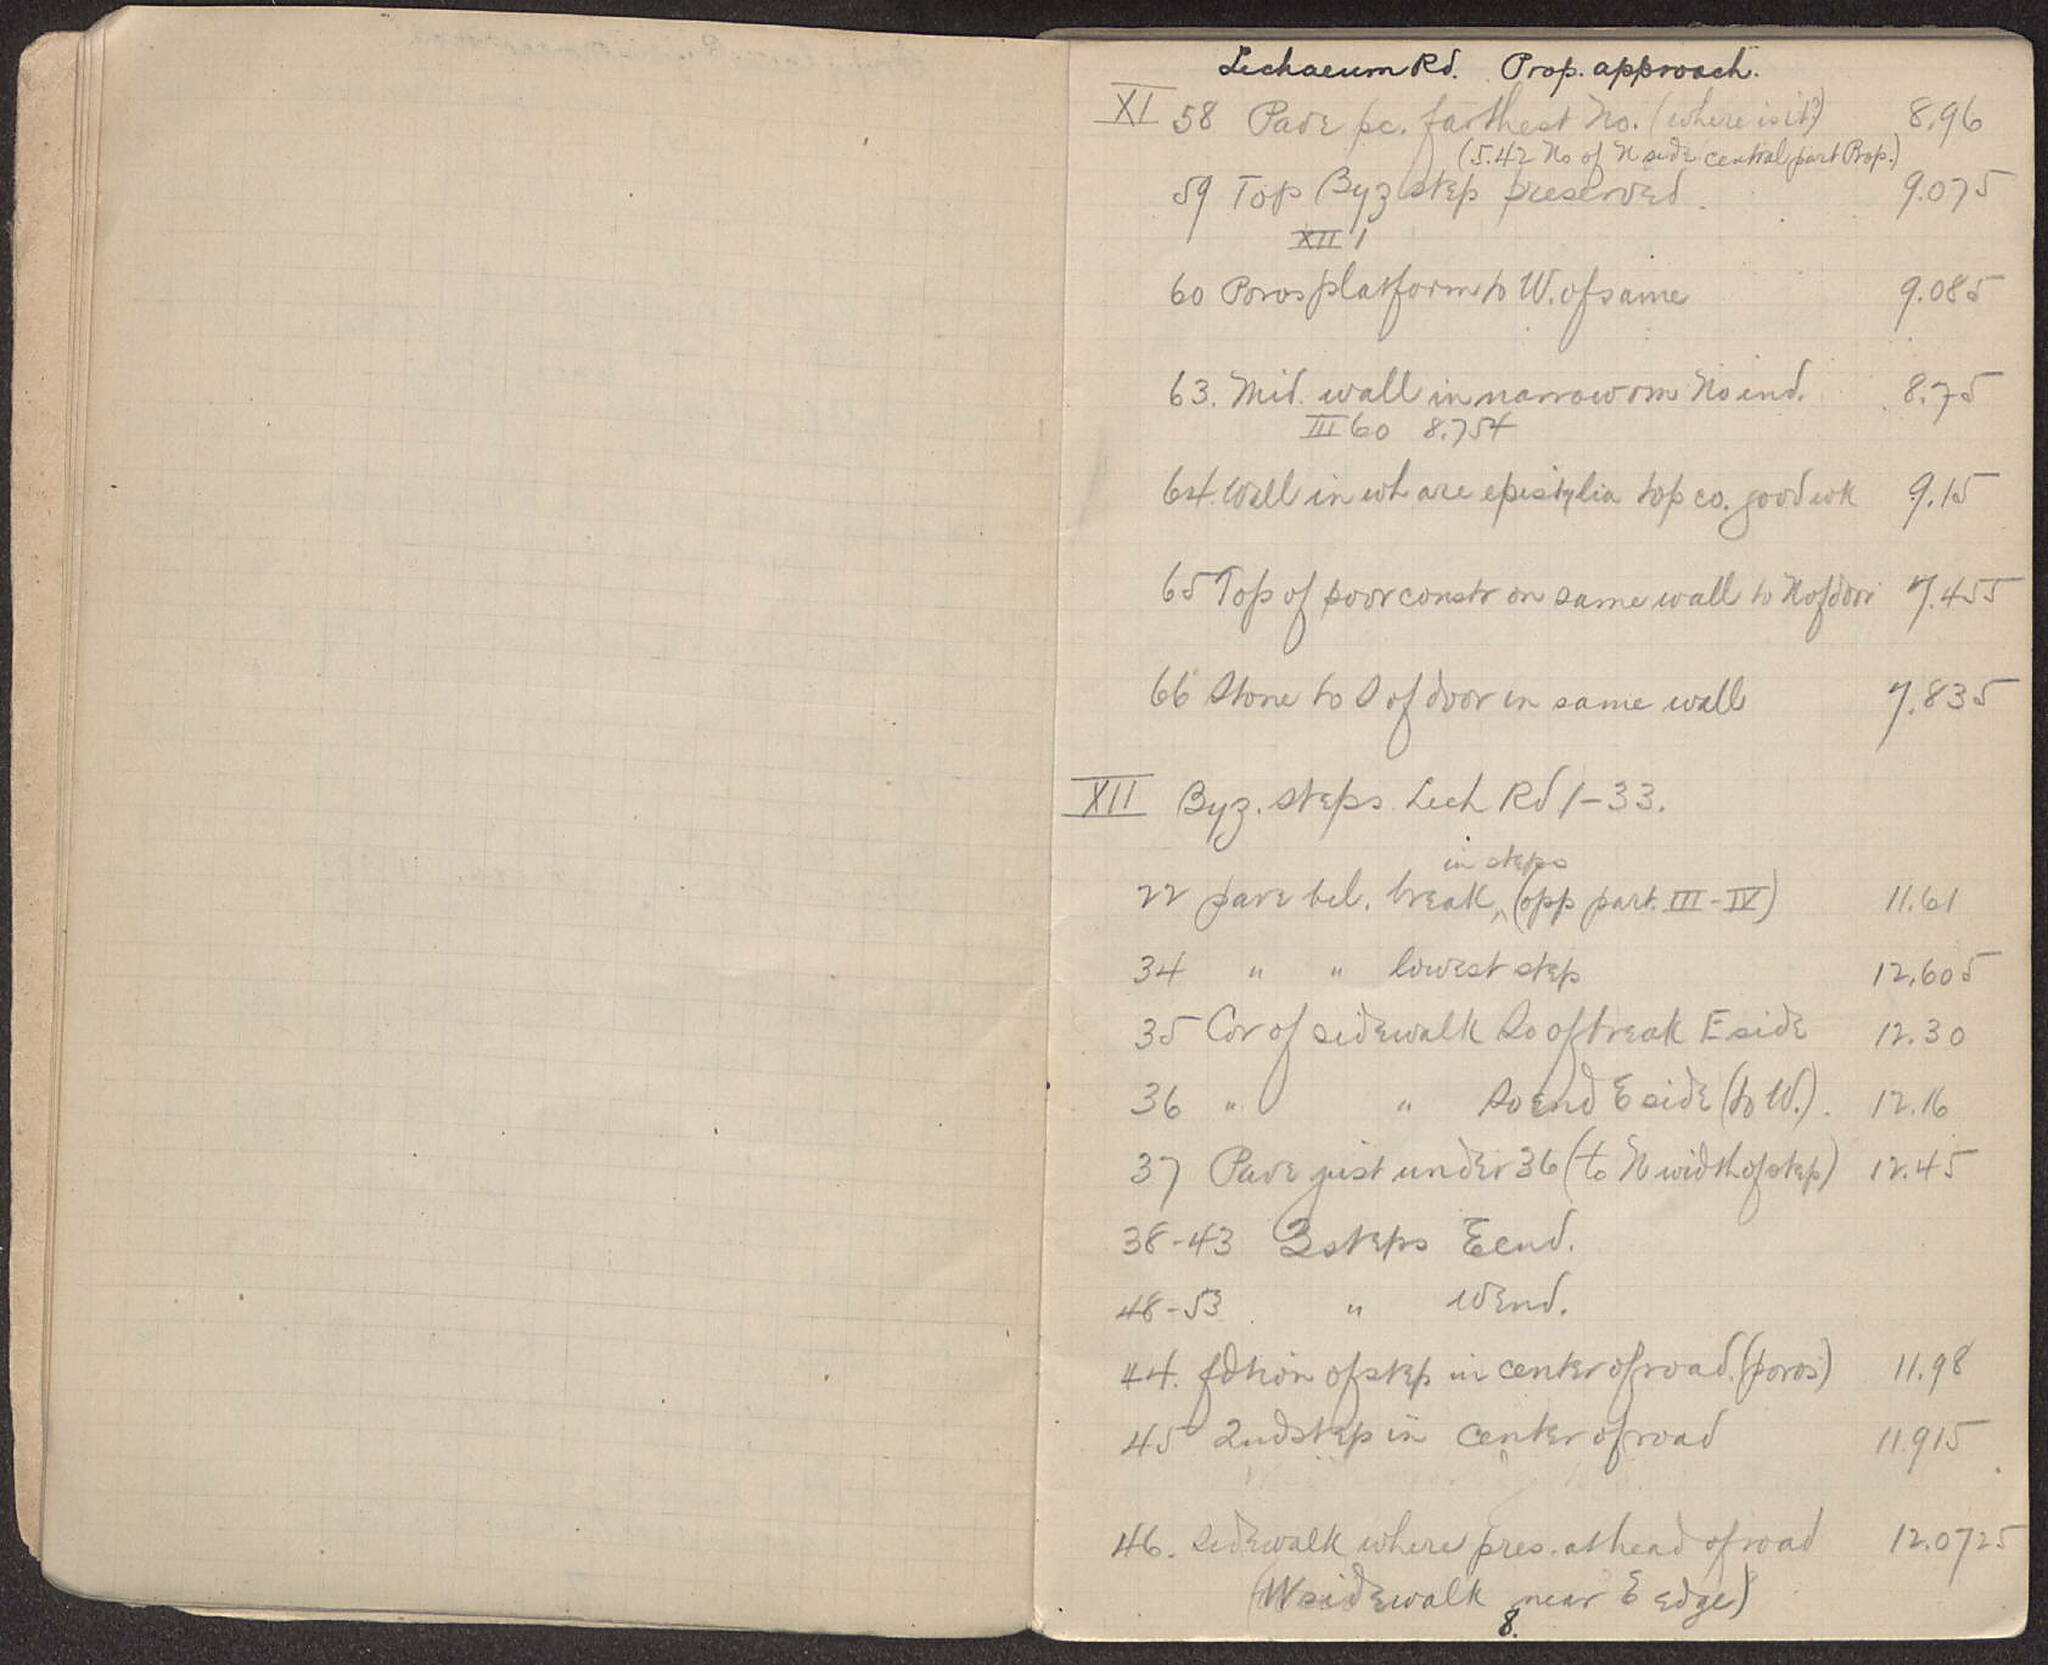 Lechaeum Rd. Prop. approach.
XI 58 Pave pc. farthest No. (where is it?) 8.96
(5.42 No of N side central part Prop.)
59 Top Byz step preserved. 9.075
XII 1
60 Poros platform to W. of same 9.085
63. Mid. wall in narrow rm No end. 8.75
III 60 8.754
64. Wall in wh are epistylia top co. good wk 9.15
65 Top of poor constr on same wall to N of door 7.455
66 Stone to S of door in same wall 7.835
XII Byz. steps Lech Rd 1-33.
in steps
22 pave bel. break ^ (opp part. III-IV) 11.61
34 " " lowest step 12.605
35 Cor of sidewalk So of break E side 12.30
36 " " So end E side (to W.). 12.16
37 Pave just under 36 (to N width of step) 12.45
38-43 3 steps E end.
48-53 " W end.
44. fdtion of step in center of road. (poros) 11.98
45 2nd step in center of road 11.915
46. Sidewalk where pres. at head of road 12.0725
(W sidewalk near E edge)
8.